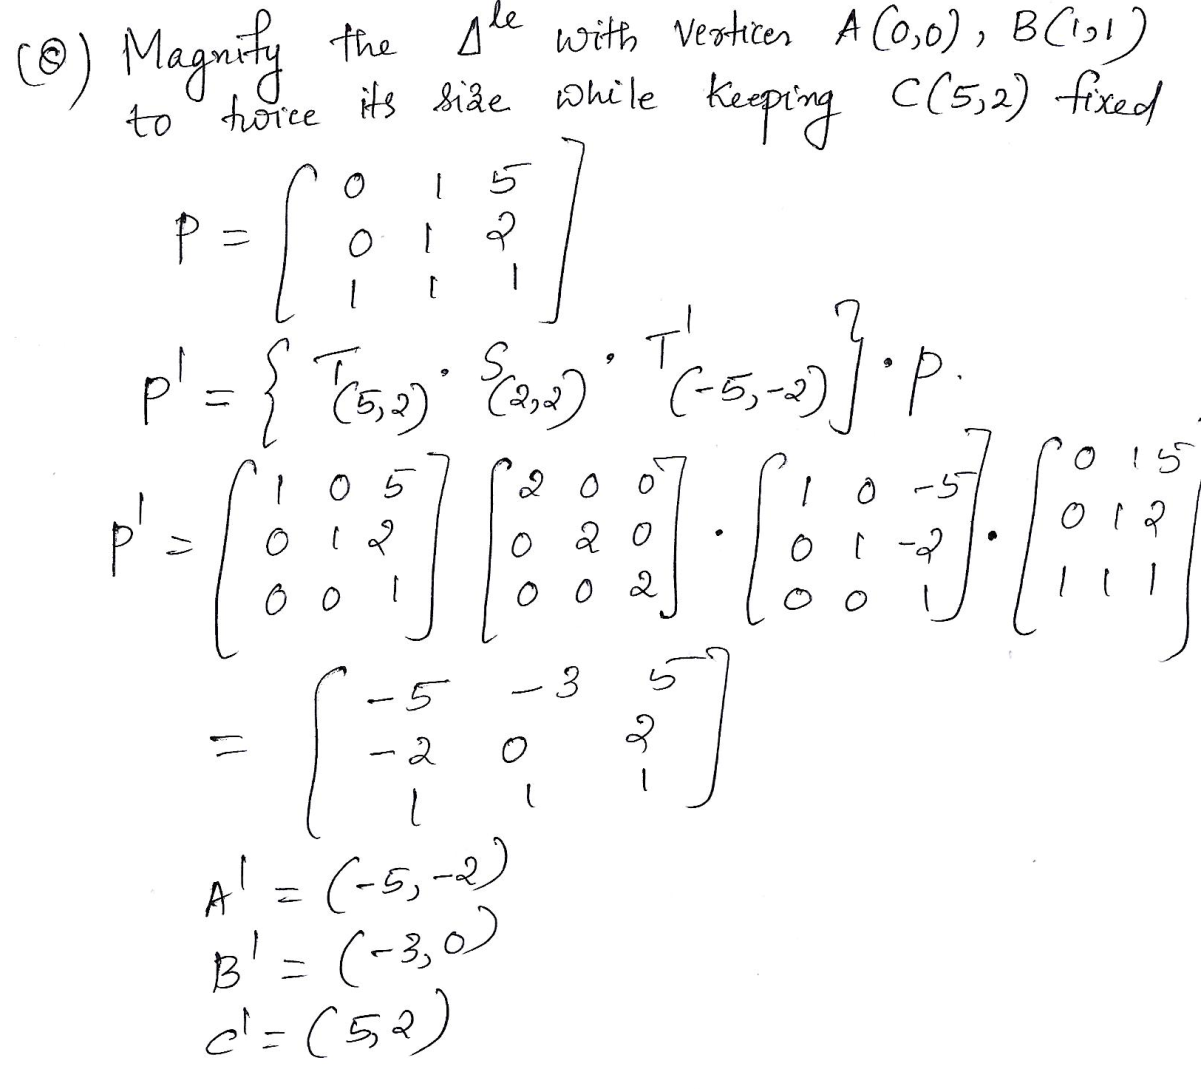 (8) Magnify the Δle with vertices A(0,0), B(1,1)
to twice its size while keeping C(5,2) fixed
P = [ 0 1 5
0 1 2
1 1 1 ]
P' = { T(5,2) · S(2,2) · T'(-5,-2) } · P.
P' = [ 1 0 5 ] [ 2 0 0 ] · [ 1 0 -5 ] · [ 0 1 5
0 1 2 0 2 0 0 1 -2 0 1 2
0 0 1 0 0 2 0 0 1 1 1 1 ]
= [ -5 -3 5
-2 0 2
1 1 1 ]
A' = (-5,-2)
B' = (-3,0)
C' = (5,2)